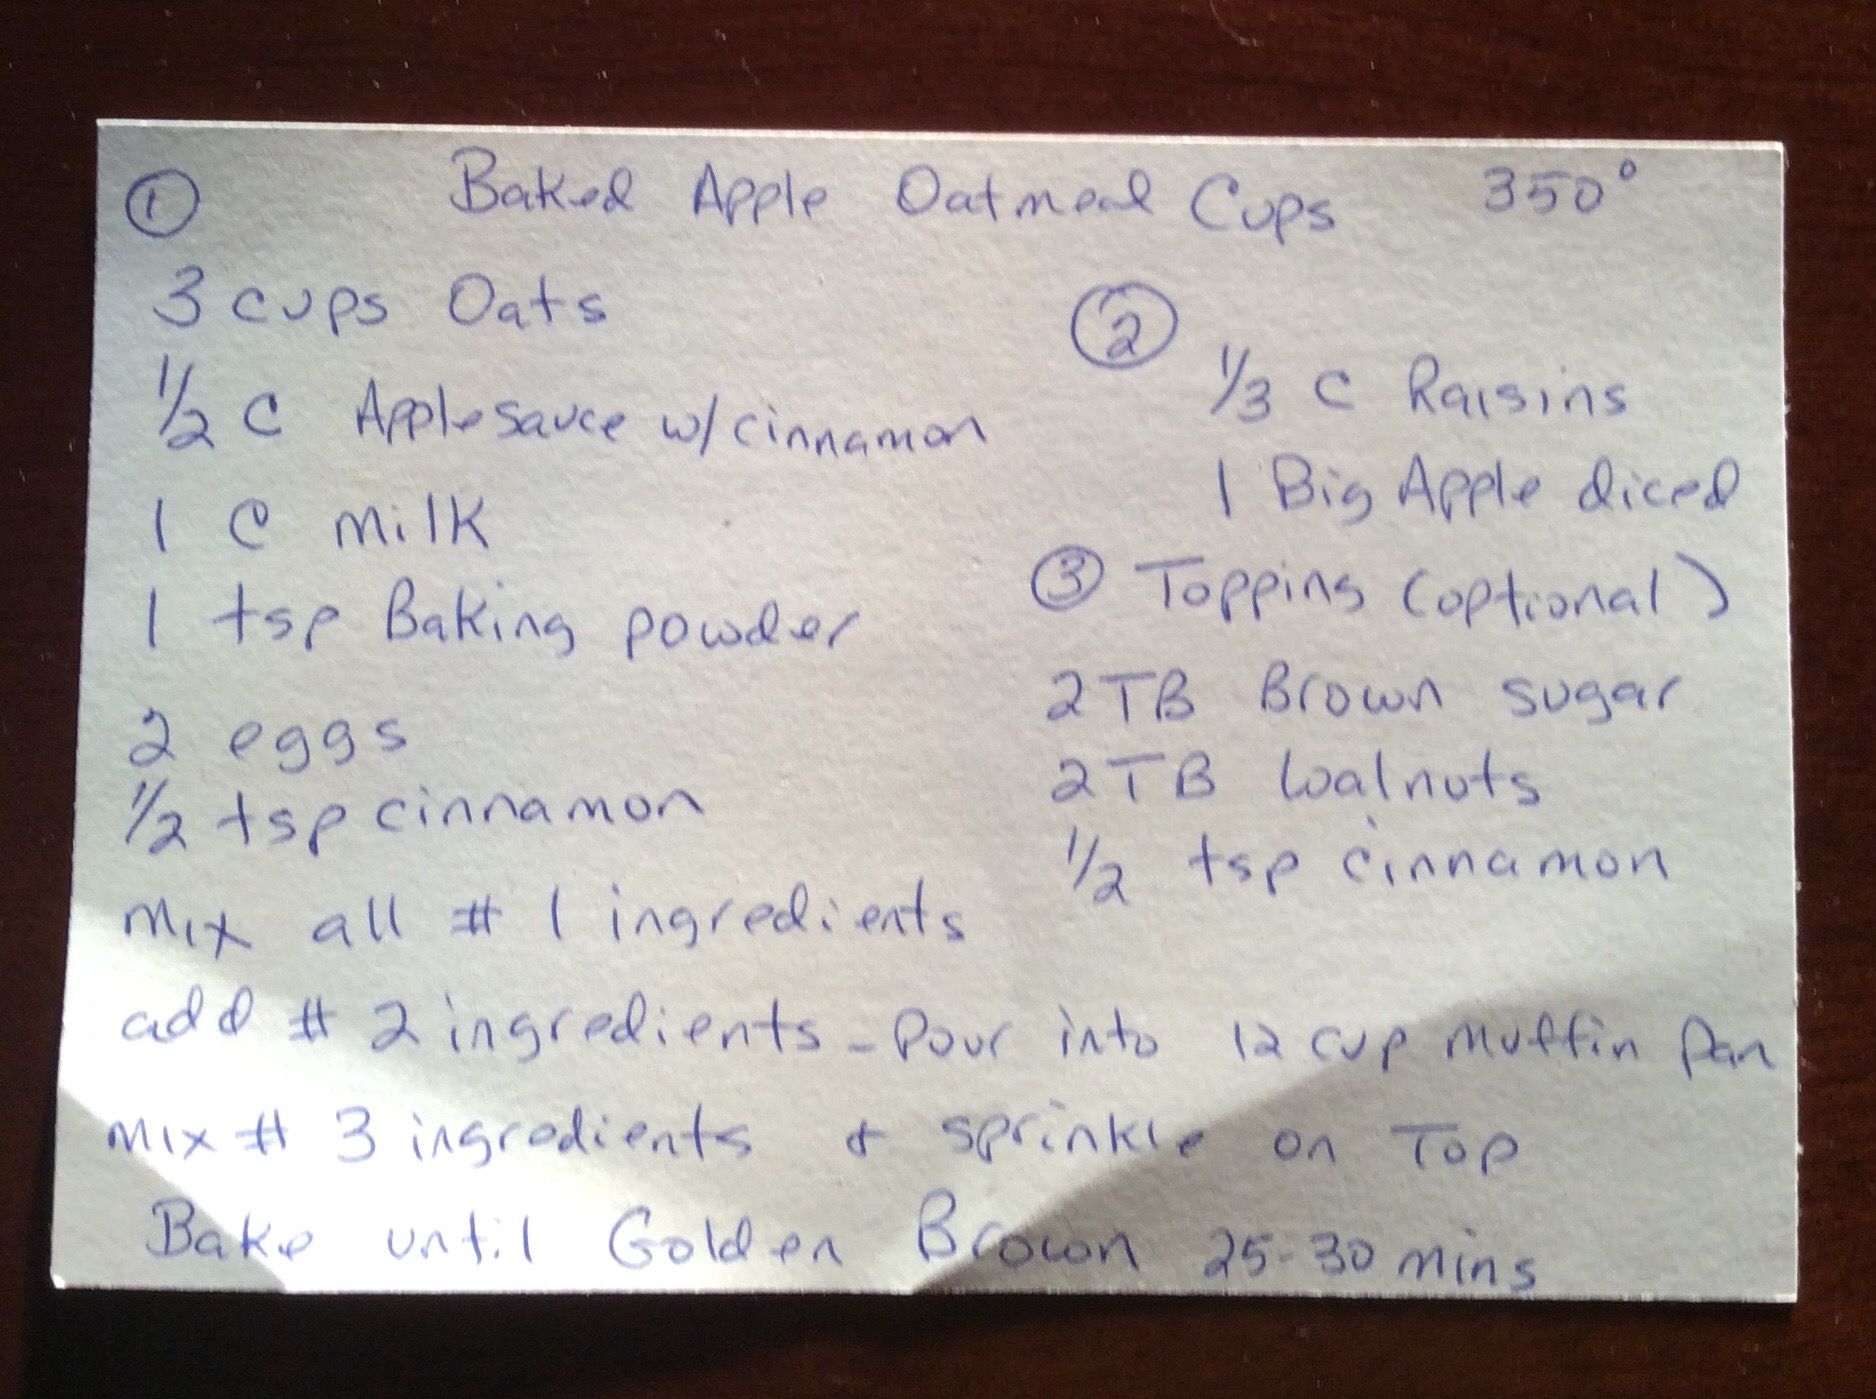 ① Baked Apple Oatmeal Cups 350°
3 cups Oats
1/2 C Applesauce w/ cinnamon
1 C milk
1 tsp Baking powder
2 eggs
1/2 tsp cinnamon
②
1/3 C Raisins
1 Big Apple diced
③ Topping (optional)
2 TB Brown sugar
2 TB walnuts
1/2 tsp cinnamon
mix all # 1 ingredients
add # 2 ingredients - Pour into 12 cup muffin Pan
mix # 3 ingredients & sprinkle on Top
Bake until Golden Brown 25-30 mins